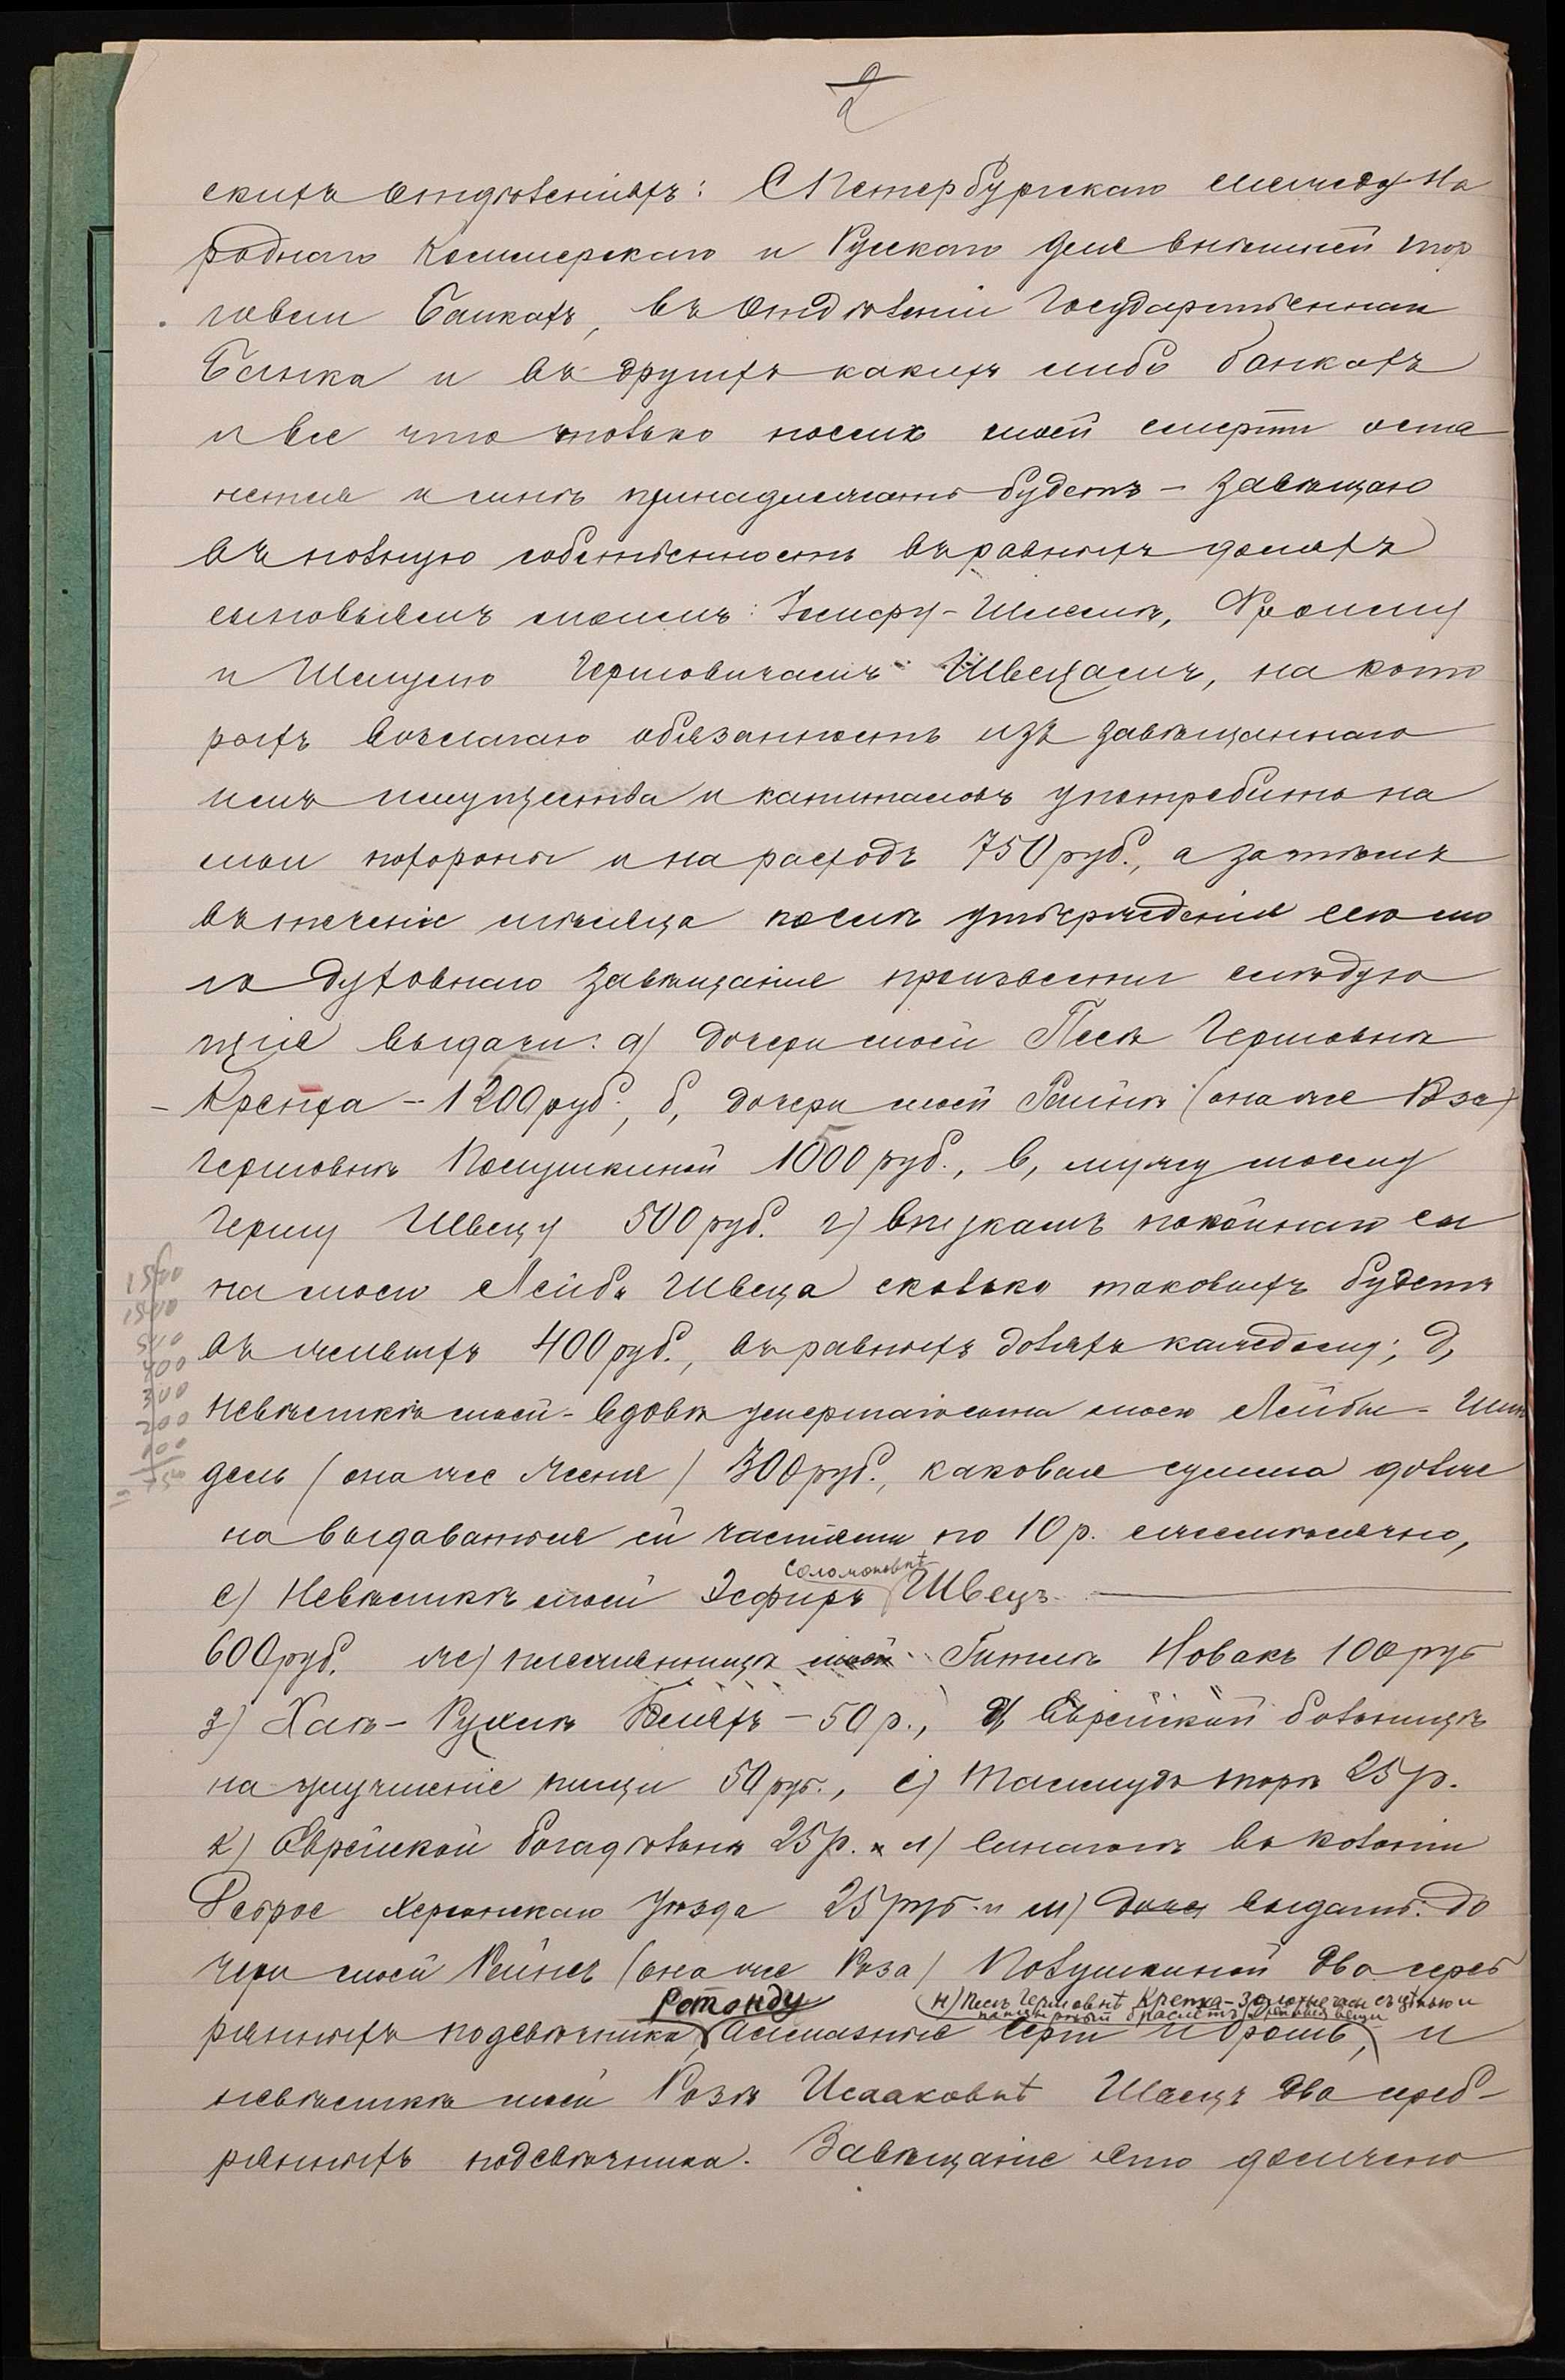 2
скихъ отдѣленіяхъ: С Петербургскаго междуна
роднаго Коммерскаго и Русскаго для внѣшней тор
говли Банкахъ, въ отдѣленіи Государственнаго
Банка и въ другихъ какихъ либо банкахъ
и все что только послѣ моей смерти оста
нется и мнѣ принадлежать будетъ – завѣщаю
въ полную собственность въ равныхъ доляхъ
сыновьямъ моимъ: Іосифу-Шлемѣ, Фроиму
и Шмулю Гершовичамъ Швецамъ, на кото
рыхъ возлагаю обязанность изъ завѣщаннаго
имъ имущества и капиталовъ употребить на
мои похороны и на расходъ 750 руб., а затѣмъ
въ теченіе мѣсяца послѣ утвержденія сего мо
го духовнаго завѣщанія произвести слѣдую
щія выдачи: а) дочери моей Песѣ Гершовнѣ
– Крепха – 1200 руб., б, дочери моей Рейнѣ (она же Роза)
Гершовнѣ Полушкиной 1500 руб., в, мужу моему
Гершу Швецу 500 руб. г) внукамъ покойнаго сы
на моего Лейбы Швеца сколько таковыхъ будетъ
въ живыхъ 400 руб., въ равныхъ доляхъ каждому; д,
невѣсткѣ моей - вдовѣ умершаго сына моего Лейбы - Шин
дель (она же Женя) 300 руб., каковая сумма долж
на выдаваться ей частями по 10 р. ежемѣсячно,
Соломоновнѣ
е) Невѣсткѣ моей Эсфирь Швецъ
600 руб. ж) племянницѣ моей Гителѣ Новакъ 100 руб
з) Хаѣ-Рухлѣ – 50 р., Еврейской больницѣ
на улучшеніе пищи 50 руб., і) Талмудъ торѣ 25 р.
к) Еврейской богадѣльнѣ 25 р. и л) Синагогѣ въ колоніи
Херсонскаго уѣзда 25 руб. и м) выдать: до
чери моей Рейнѣ (она же Роза) Полушкиной два сереб
Ротонду
н) Песѣ Гершовнѣ Крепха – золотые часы съ цѣпью и
панцырный браслетъ
рянныхъ подсвѣчника, Алмазные серги и брошь, и
невѣсткѣ моей Розѣ Исааковнѣ Швецъ два сереб-
рянныхъ подсвѣчника. Завѣщаніе это должно
1500
1500
500
400
300
200
100